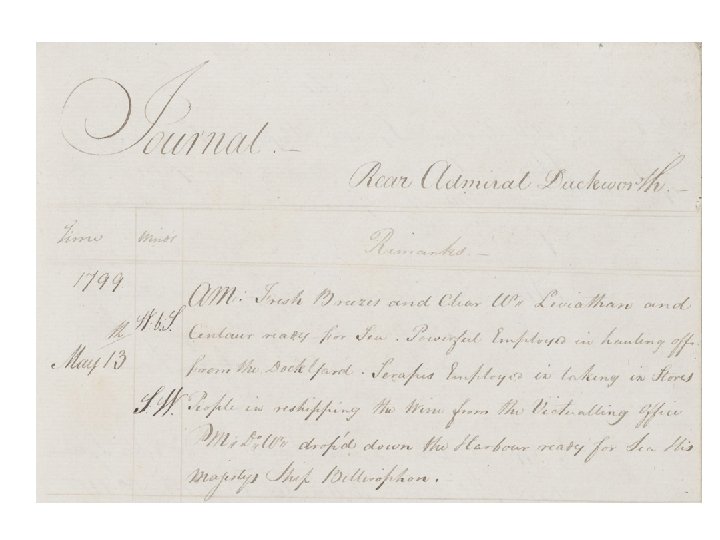 Journal. —
Rear Admiral Duckworth. —
Time Winds Remarks —
1799
AM: Fresh Breezes and Clear Wr Leviathan and
W b S. Centaur ready for Sea. Powerful Employed in hauling off
th
May 13 from the Dock Yard. Serapis Employ'd in taking in Stores
S W. People in reshipping the Wine from the Victualling Office
PM, Do Wr drop'd down the Harbour ready for Sea His
Majestys Ship Bellerophon.